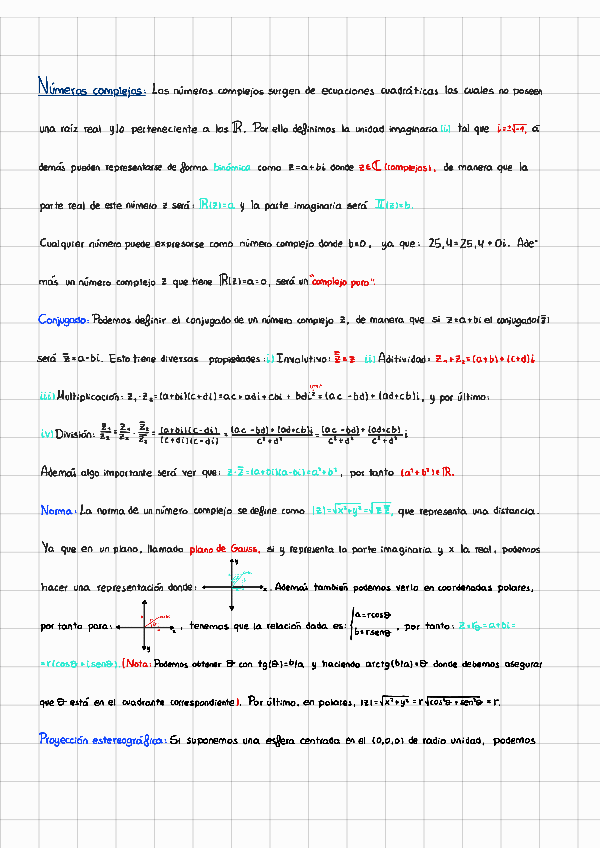 Números complejos: Los números complejos surgen de ecuaciones cuadráticas las cuales no poseen
una raíz real y/o perteneciente a los ℝ. Por ello definimos la unidad imaginaria (i) tal que i=±√-1, a
demás pueden representarse de forma binómica como z=a+bi donde z∈ℂ (complejos), de manera que la
parte real de este número z será: ℝ(z)=a y la parte imaginaria será 𝕀(z)=b.
Cualquier número puede expresarse como número complejo donde b=0, ya que: 25,4=25,4+0i. Ade-
más un número complejo z que tiene ℝ(z)=a=0, será un "complejo puro".
Conjugado: Podemos definir el conjugado de un número complejo z, de manera que si z=a+bi el conjugado(z̅)
será z̅=a-bi. Esto tiene diversas propiedades: i) Involutivo: z̿=z ii) Aditividad: z₁+z₂=(a+b)+(c+d)i
iii) Multiplicación: z₁·z₂=(a+bi)(c+di)=ac+adi+cbi+bdi²=(ac-bd)+(ad+cb)i, y por último:
iv) División: z₁/z₂=z₁/z₂·z̅₂/z̅₂=(a+bi)(c-di)/(c+di)(c-di)=(ac-bd)+(ad+cb)i/c²+d²=(ac-bd)/c²+d²+(ad+cb)/c²+d² i
Además algo importante será ver que: z·z̅=(a+bi)(a-bi)=a²+b², por tanto (a²+b²)∈ℝ.
Norma: La norma de un número complejo se define como |z|=√x²+y²=√z z̅, que representa una distancia.
Ya que en un plano, llamado plano de Gauss, si y representa la parte imaginaria y x la real, podemos
hacer una representación donde: y x. Además también podemos verlo en coordenadas polares,
por tanto para: x y, tenemos que la relación dada es: {a=rcosθ b=rsenθ, por tanto: z=rθ=a+bi=
=r(cosθ+isenθ). (Nota: Podemos obtener θ con tg(θ)=b/a y haciendo arctg(b/a)=θ donde debemos asegurar
que θ está en el cuadrante correspondiente). Por último, en polares, |z|=√x²+y²=r√cos²θ+sen²θ=r.
Proyección estereográfica: Si suponemos una esfera centrada en el (0,0,0) de radio unidad, podemos